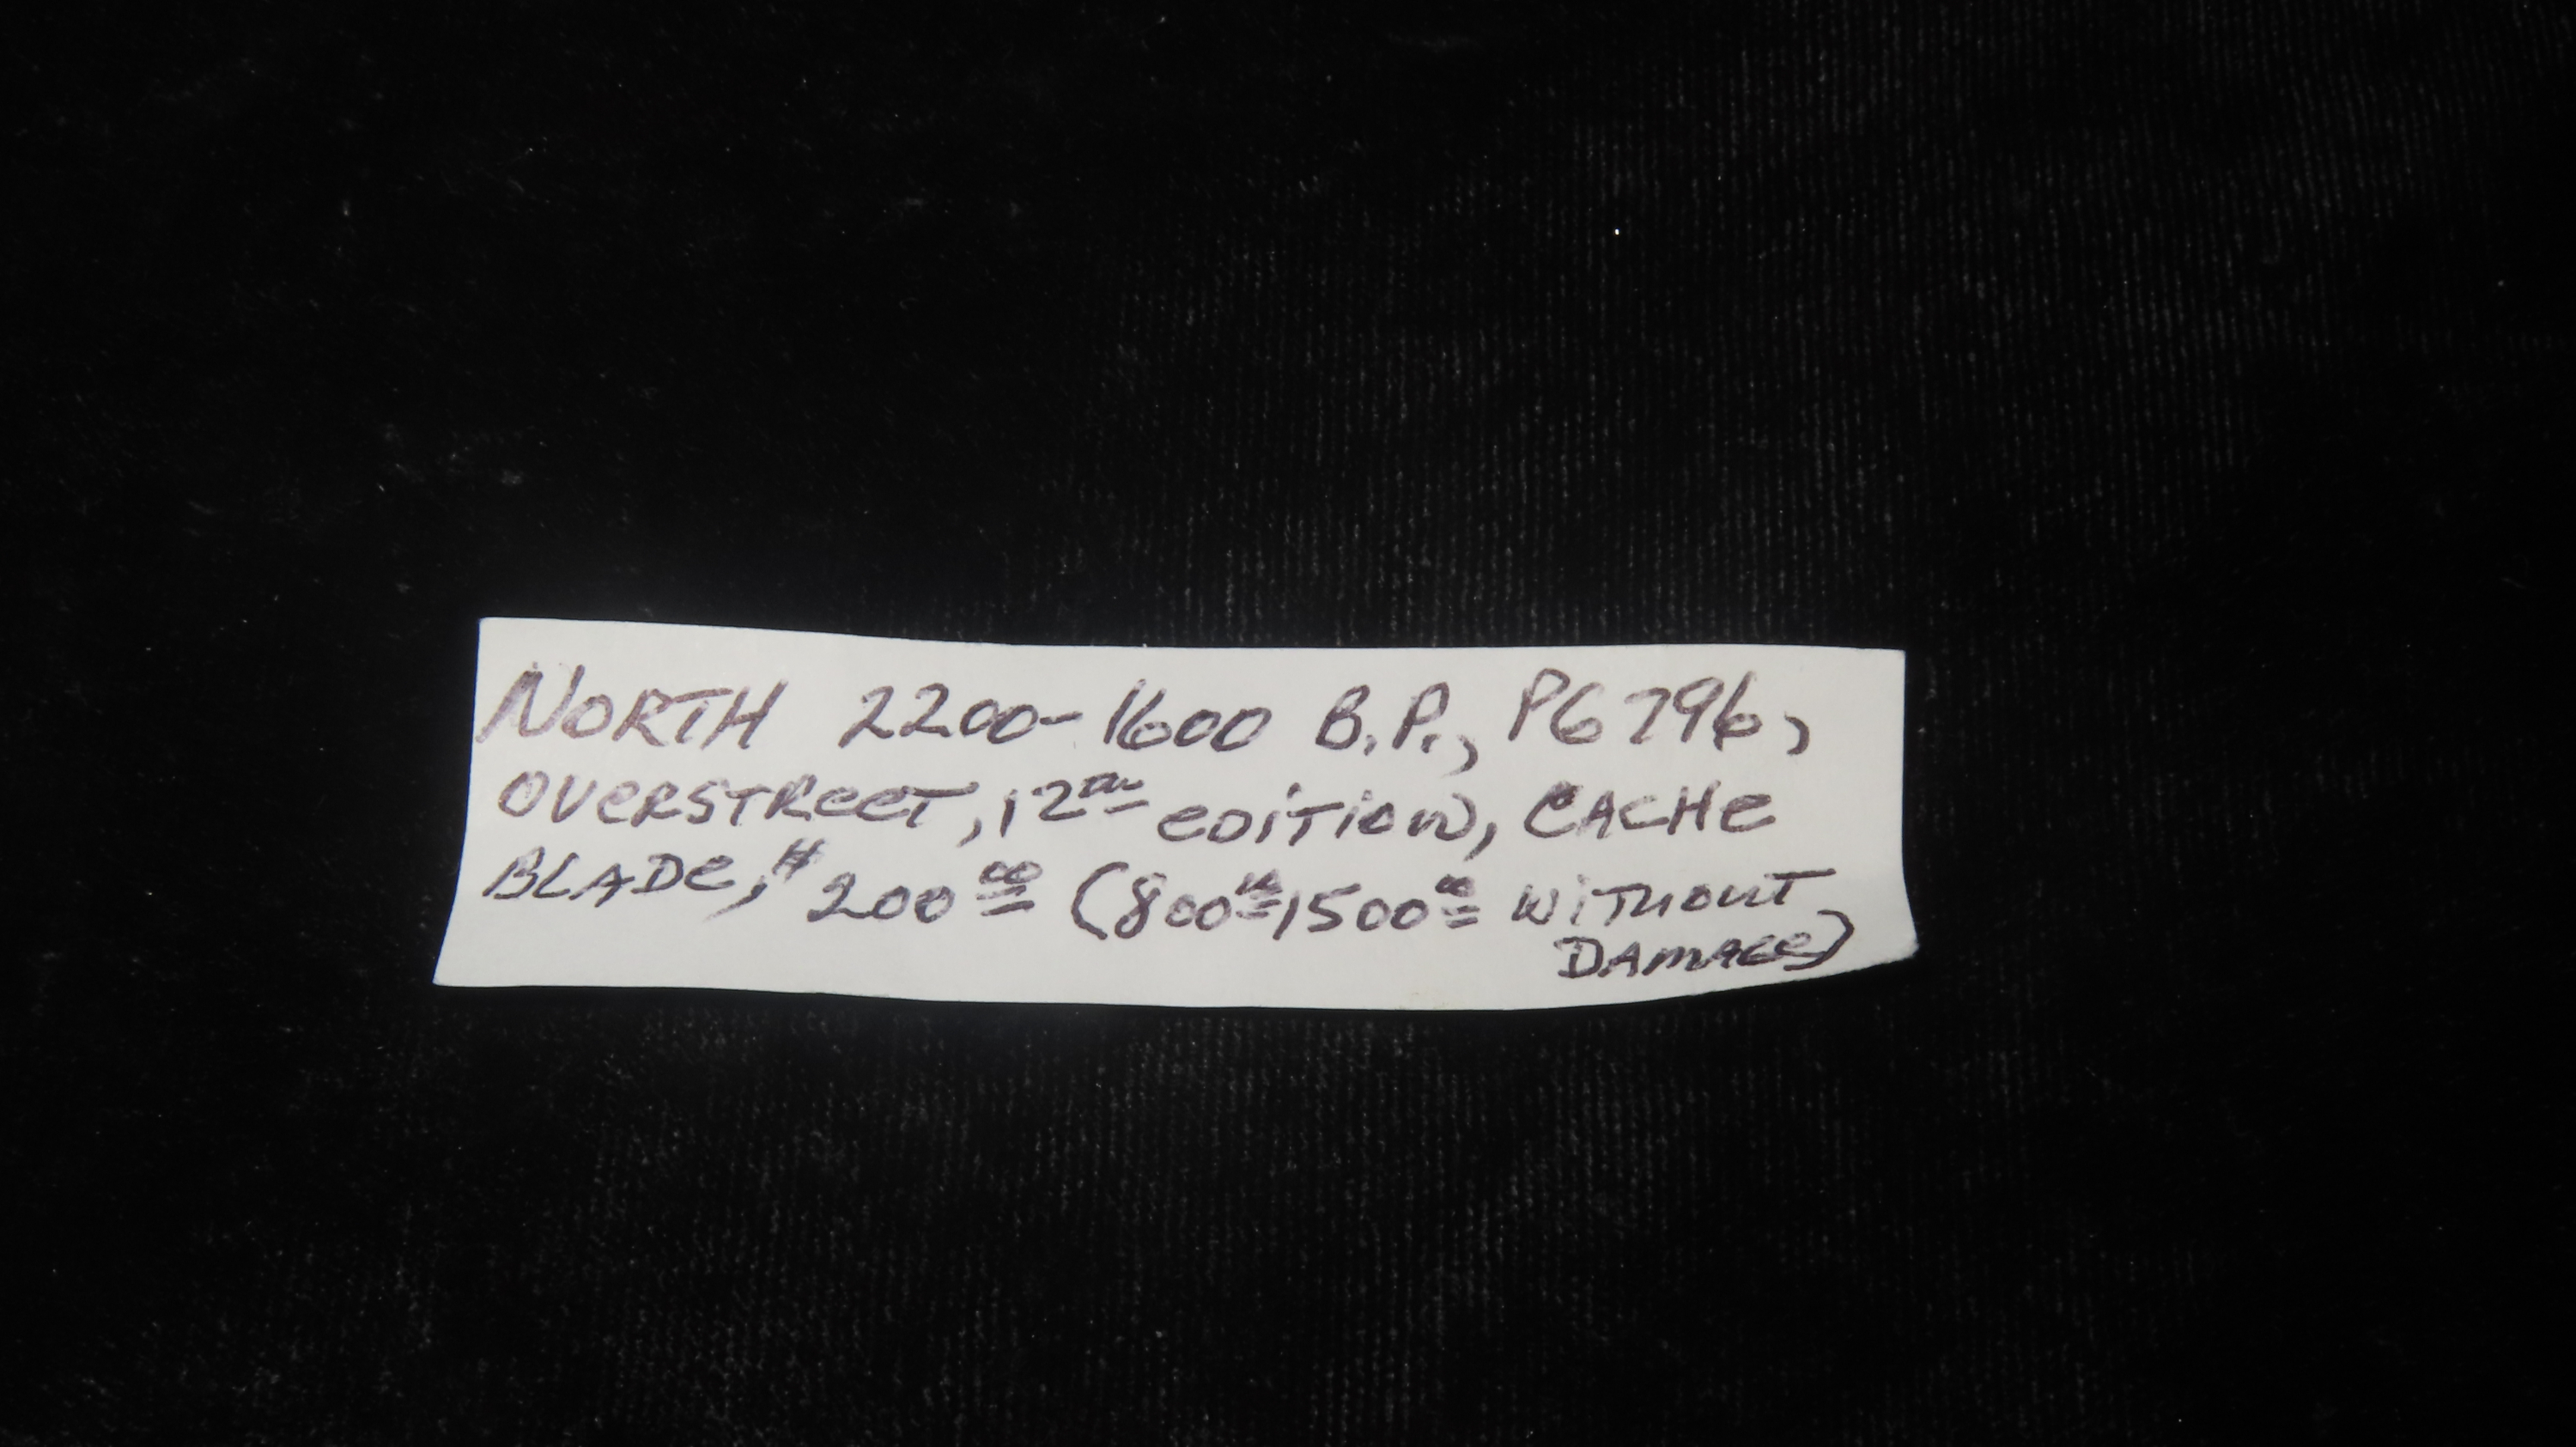 NORTH 2200-1600 B.P., PG 796,
OVERSTREET, 12TH EDITION, CACHE
BLADE, $200.00 (800.00-1500.00 WITHOUT
DAMAGE)